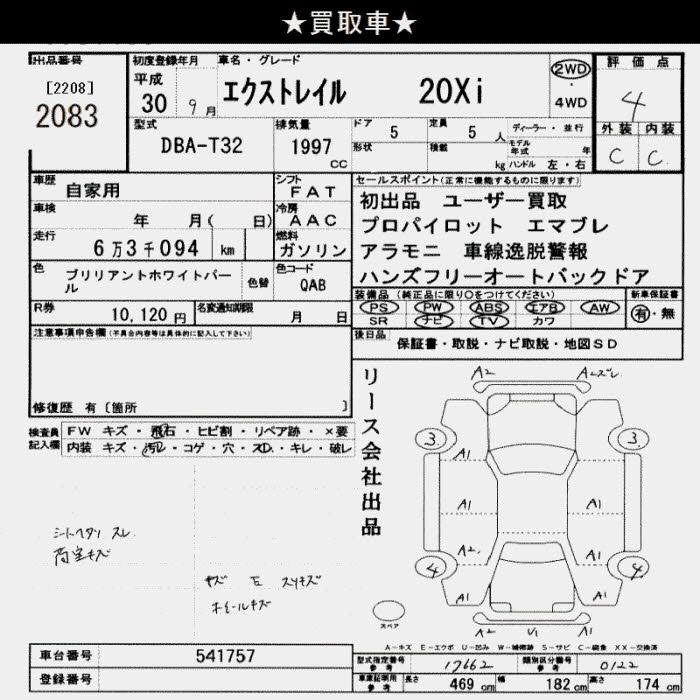 ★買取車★
出品番号 初度登録年月 車名・グレード 評価点
[2208]
2083
平成
30 9月
エクストレイル 20Xi
2WD
・
4WD
4
外装 内装
C C
型式 排気量 ドア 5 定員 5人 ディーラー・並行
DBA-T32 1997 cc
形状 積載 kg モデル年式 年
ハンドル 左・右
車歴 自家用 シフト FAT
車検 年 月( 日) 冷房 AAC
走行 6万3千094 km 燃料 ガソリン
色 ブリリアントホワイトパール 色替 色コード QAB
R券 10,120円 名変通知期限 月 日
セールスポイント(正常に機能するものに限ります)
初出品 ユーザー買取
プロパイロット エマブレ
アラモニ 車線逸脱警報
ハンズフリーオートバックドア
装備品 (純正品に限り○をつけてください) 新車保証書
PS PW ABS エアB AW 有・無
SR ナビ TV カワ
後日品 保証書・取説・ナビ取説・地図SD
注意事項申告欄(不具合内容等は具体的に記入して下さい)
修復歴 有〔箇所 〕
検査員記入欄
FW キズ・飛石・ヒビ割・リペア跡・×要
内装 キズ・汚レ・コゲ・穴・スレ・キレ・破レ
リース会社出品
シートヘタリ スレ
荷室キズ
キズ 左 スリキズ
ホイールキズ
A2 A2スレ
3 3
A1
A1 A1
A2 A1
4 4
A1 A1
A2 U1 A1
スペア
A-キズ E-エクボ U-凹み W-補修跡 S-サビ C-腐食 XX-交換済
車台番号 541757
登録番号
型式指定番号 参考 17662 類別区分番号 参考 0122
車庫証明用 参考 長さ 469cm 幅 182cm 高さ 174cm